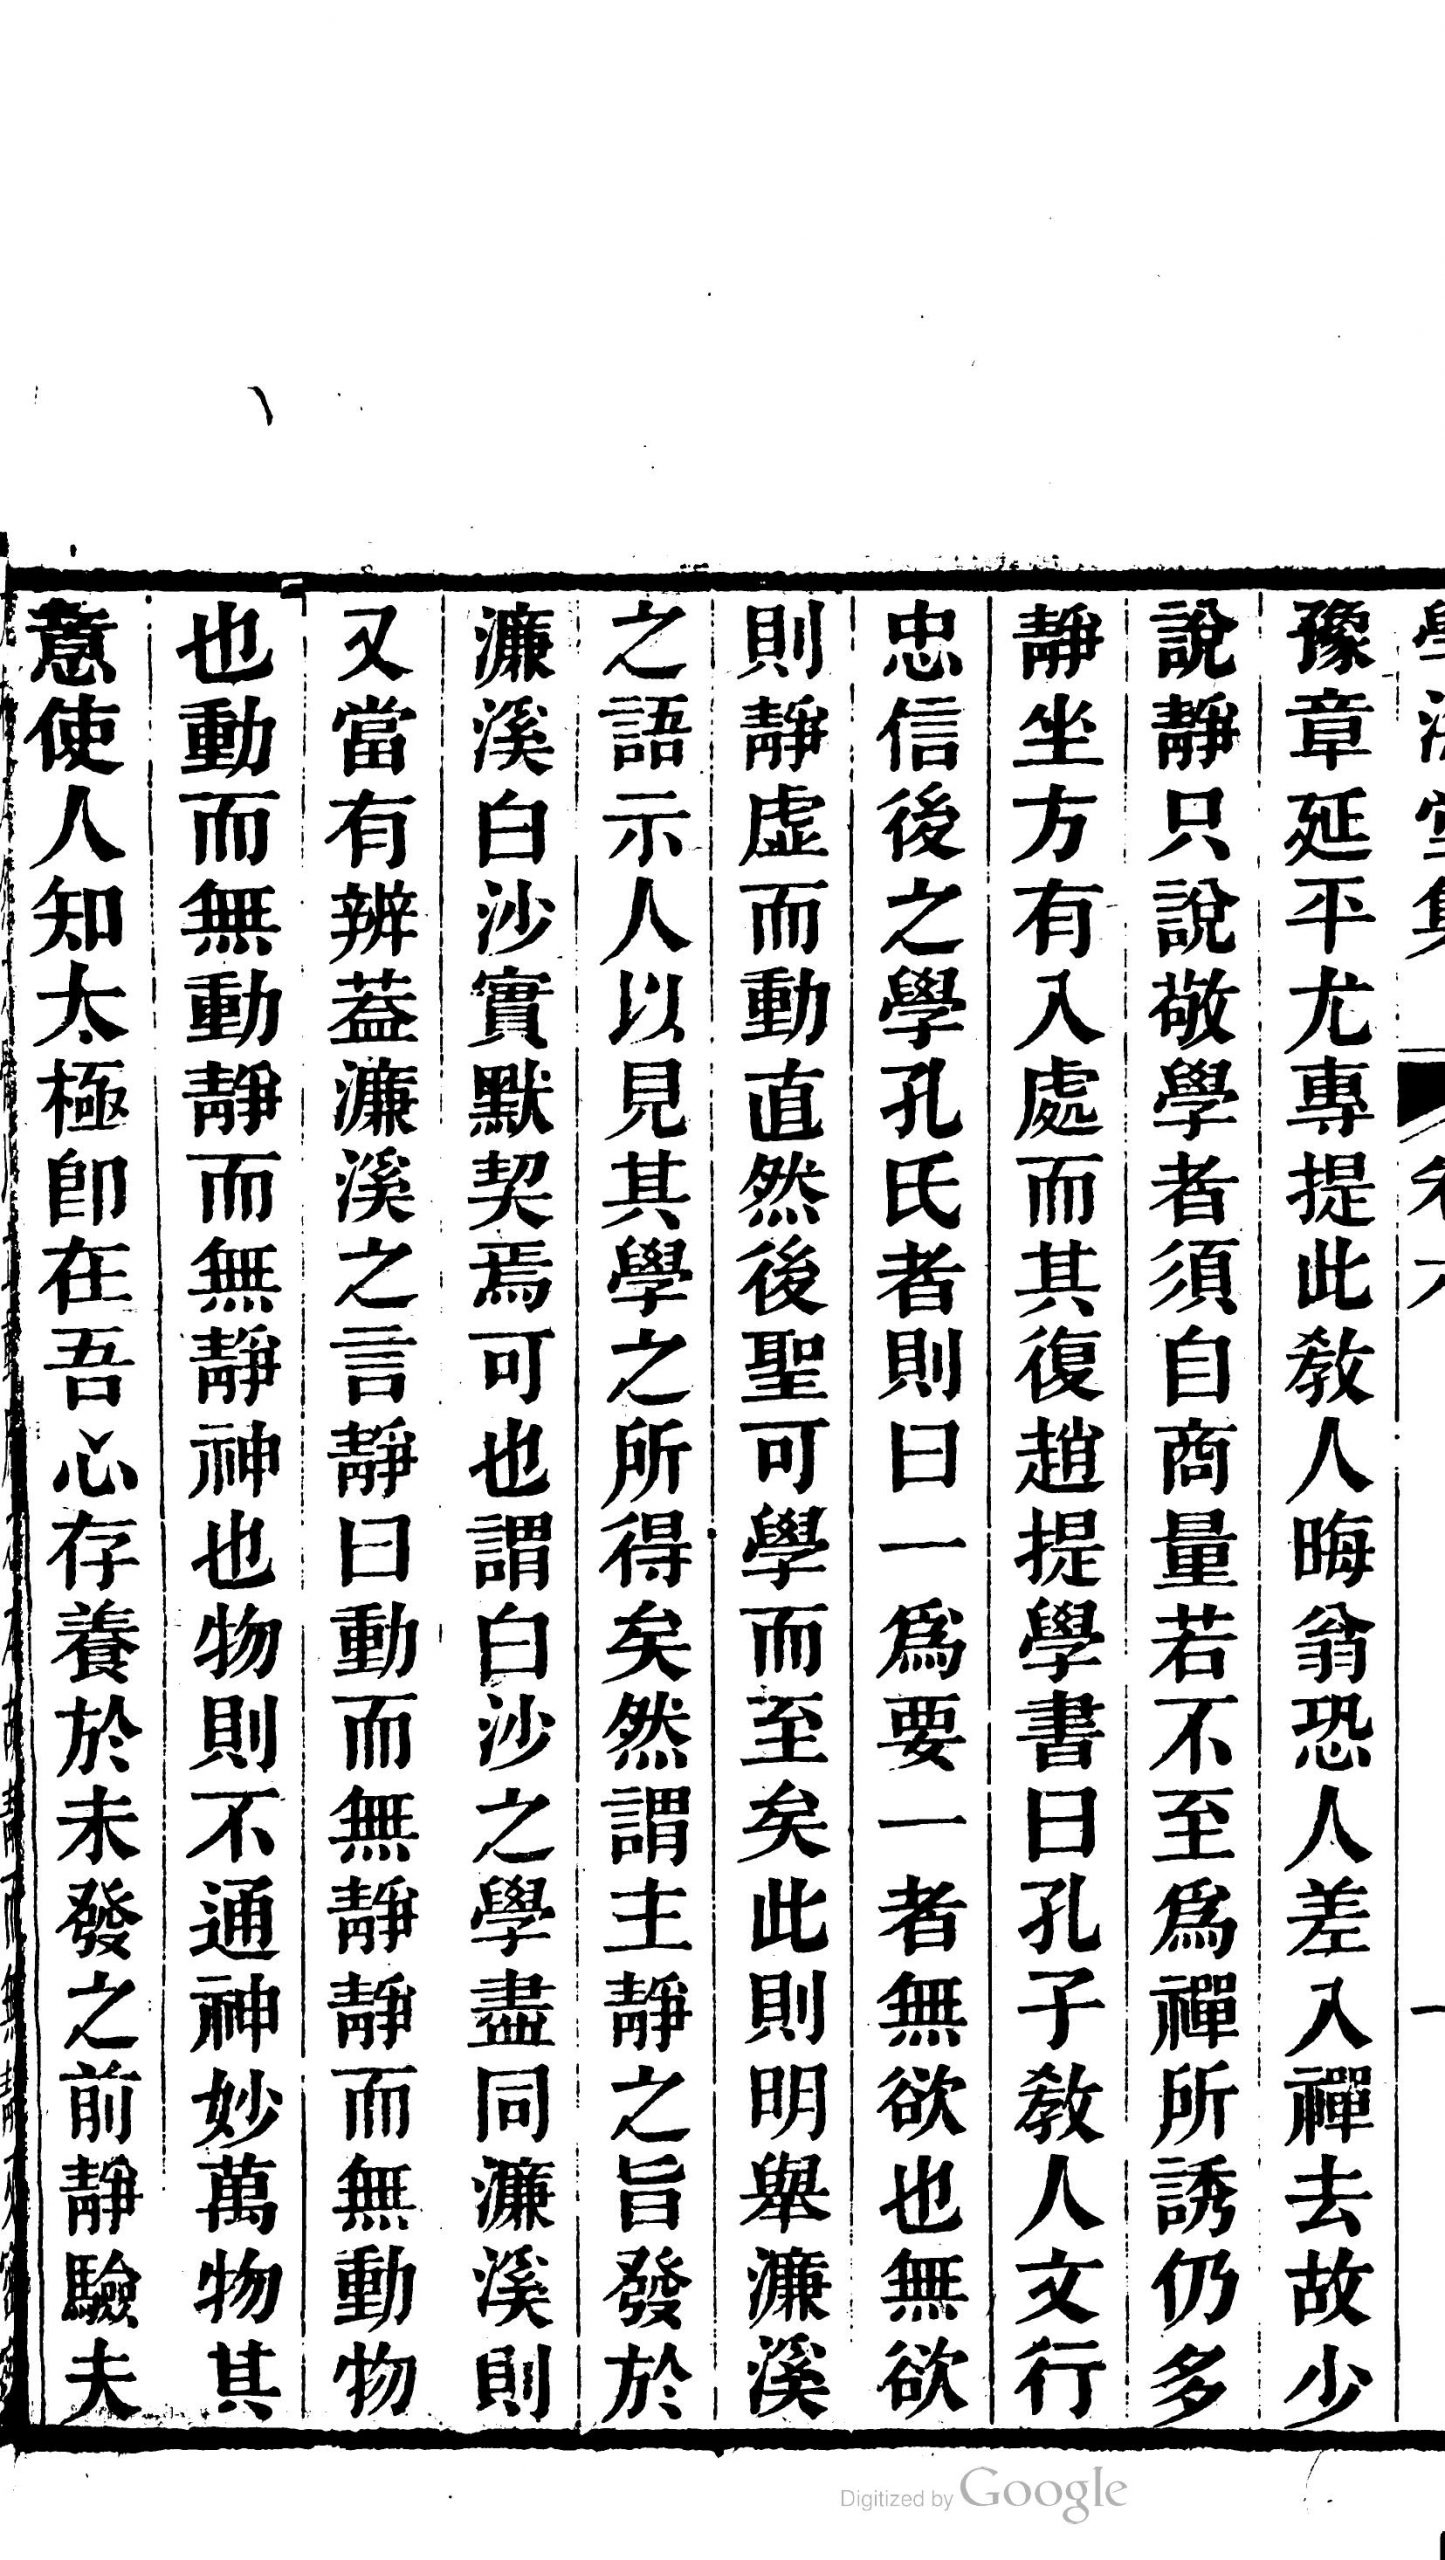 豫章延平尤專提此教人晦翁恐人差入禪去故少
說靜只說敬學者須自商量若不至爲禪所誘仍多
靜坐方有入處而其復趙提學書曰孔子教人文行
忠信後之學孔氏者則曰一爲要一者無欲也無欲
則靜虛而動直然後聖可學而至矣此則明舉濂溪
之語示人以見其學之所得矣然謂主靜之旨發於
濂溪白沙實默契焉可也謂白沙之學盡同濂溪則
又當有辨葢濂溪之言靜曰動而無靜靜而無動物
也動而無動靜而無靜神也物則不通神妙萬物其
意使人知太極卽在吾心存養於未發之前靜驗夫
Digitized by Google